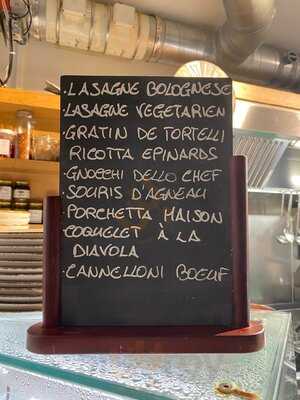 · LASAGNE BOLOGNESE
· LASAGNE VEGETARIEN
· GRATIN DE TORTELLI
RICOTTA EPINARDS
· GNOCCHI DELLO CHEF
· SOURIS D'AGNEAU
· PORCHETTA MAISON
· COQUELET À LA
DIAVOLA
· CANNELLONI BOEUF